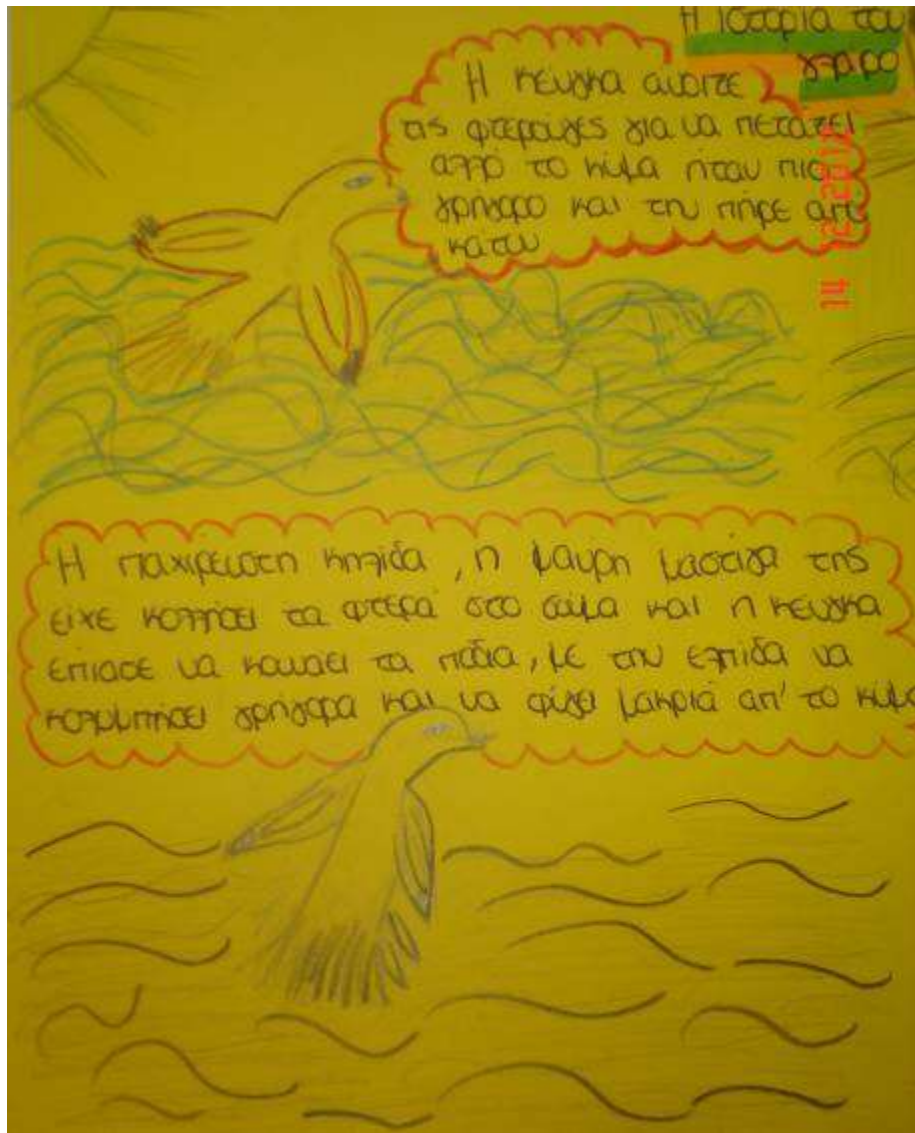 Η ιστορία του
γλάρο
Η κευγκα ανοιξε
τις φτερούγες για να πετάξει
αλλο το κύμα ήταν πιο
γρήγορο και την πήρε απο
κατου
Η παχιρευστη κηλίδα, η μαυρη μαστίγα της
ειχε κολλήσει τα φτερά στο σωμα και η κευγκα
επιασε να κουναει τα πόδια, με την ελπιδα να
κολυμπήσει γρήγορα και να φύγει μακριά απ' το κύμα